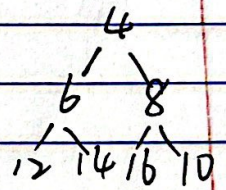 4
6 8
12 14 16 10